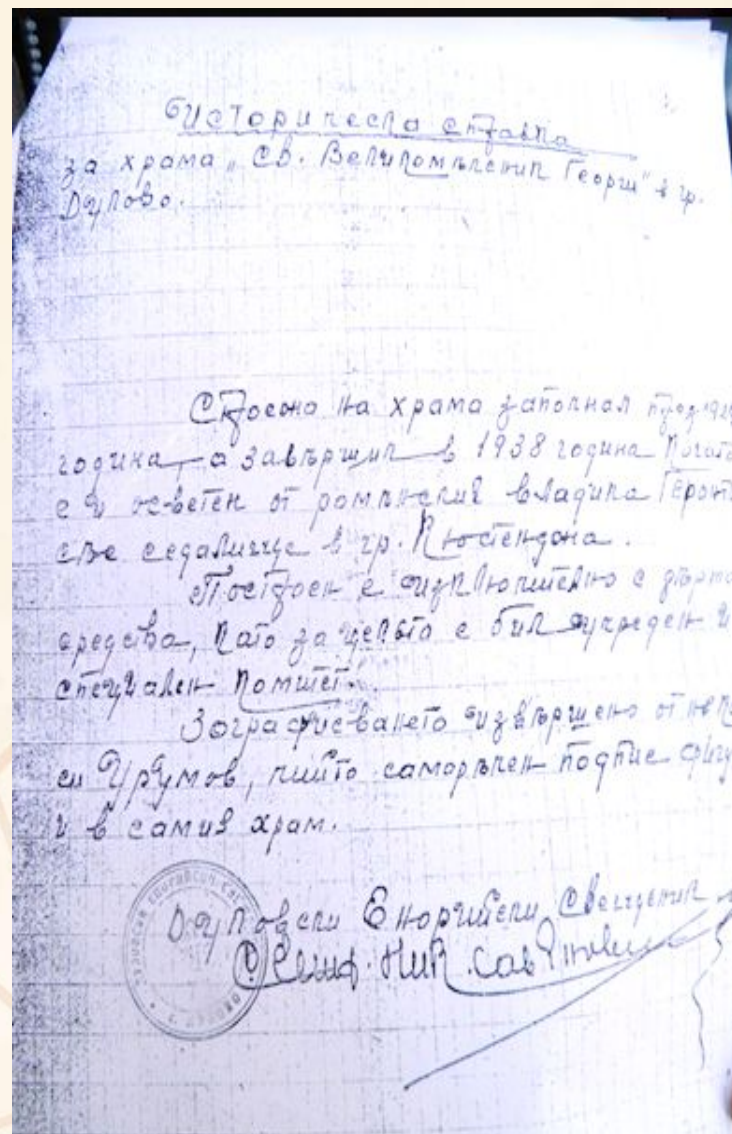 Историческа справка
за храма „Св. Великомъченик Георги" в гр.
Дулово.
Строежа на храма започнал през 192
година, а завършил в 1938 година Когато
е и осветен от ромънския владика Геронт
със седалище в гр. Кюстенджа.
Построен е изключително с държ
средства, като за целта е бил учреден и
специален комитет.
Зографисването извършено от
си Урумов, чийто саморъчен подпис фигу
и в самия храм.
Дуловски Енорийски Свещеник
Свещ. Ник.